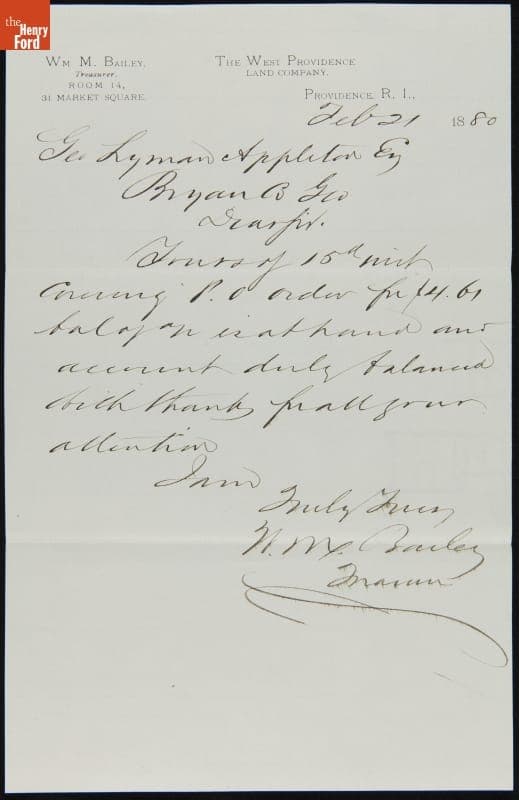 the
Henry
Ford
WM M. BAILEY,
Treasurer.
ROOM 14,
31 MARKET SQUARE.
THE WEST PROVIDENCE
LAND COMPANY.
PROVIDENCE, R. I.,
Feb 21 1880
Geo Lyman Appleton Esq
Bryan Co Geo
Dear Sir.
Yours of 15th inst
Covering P. O order for $4.61
bal of % is at hand and
account duly balanced
With thanks for all your
attention
I am
Truly Yours
W. M. Bailey
Treasurer